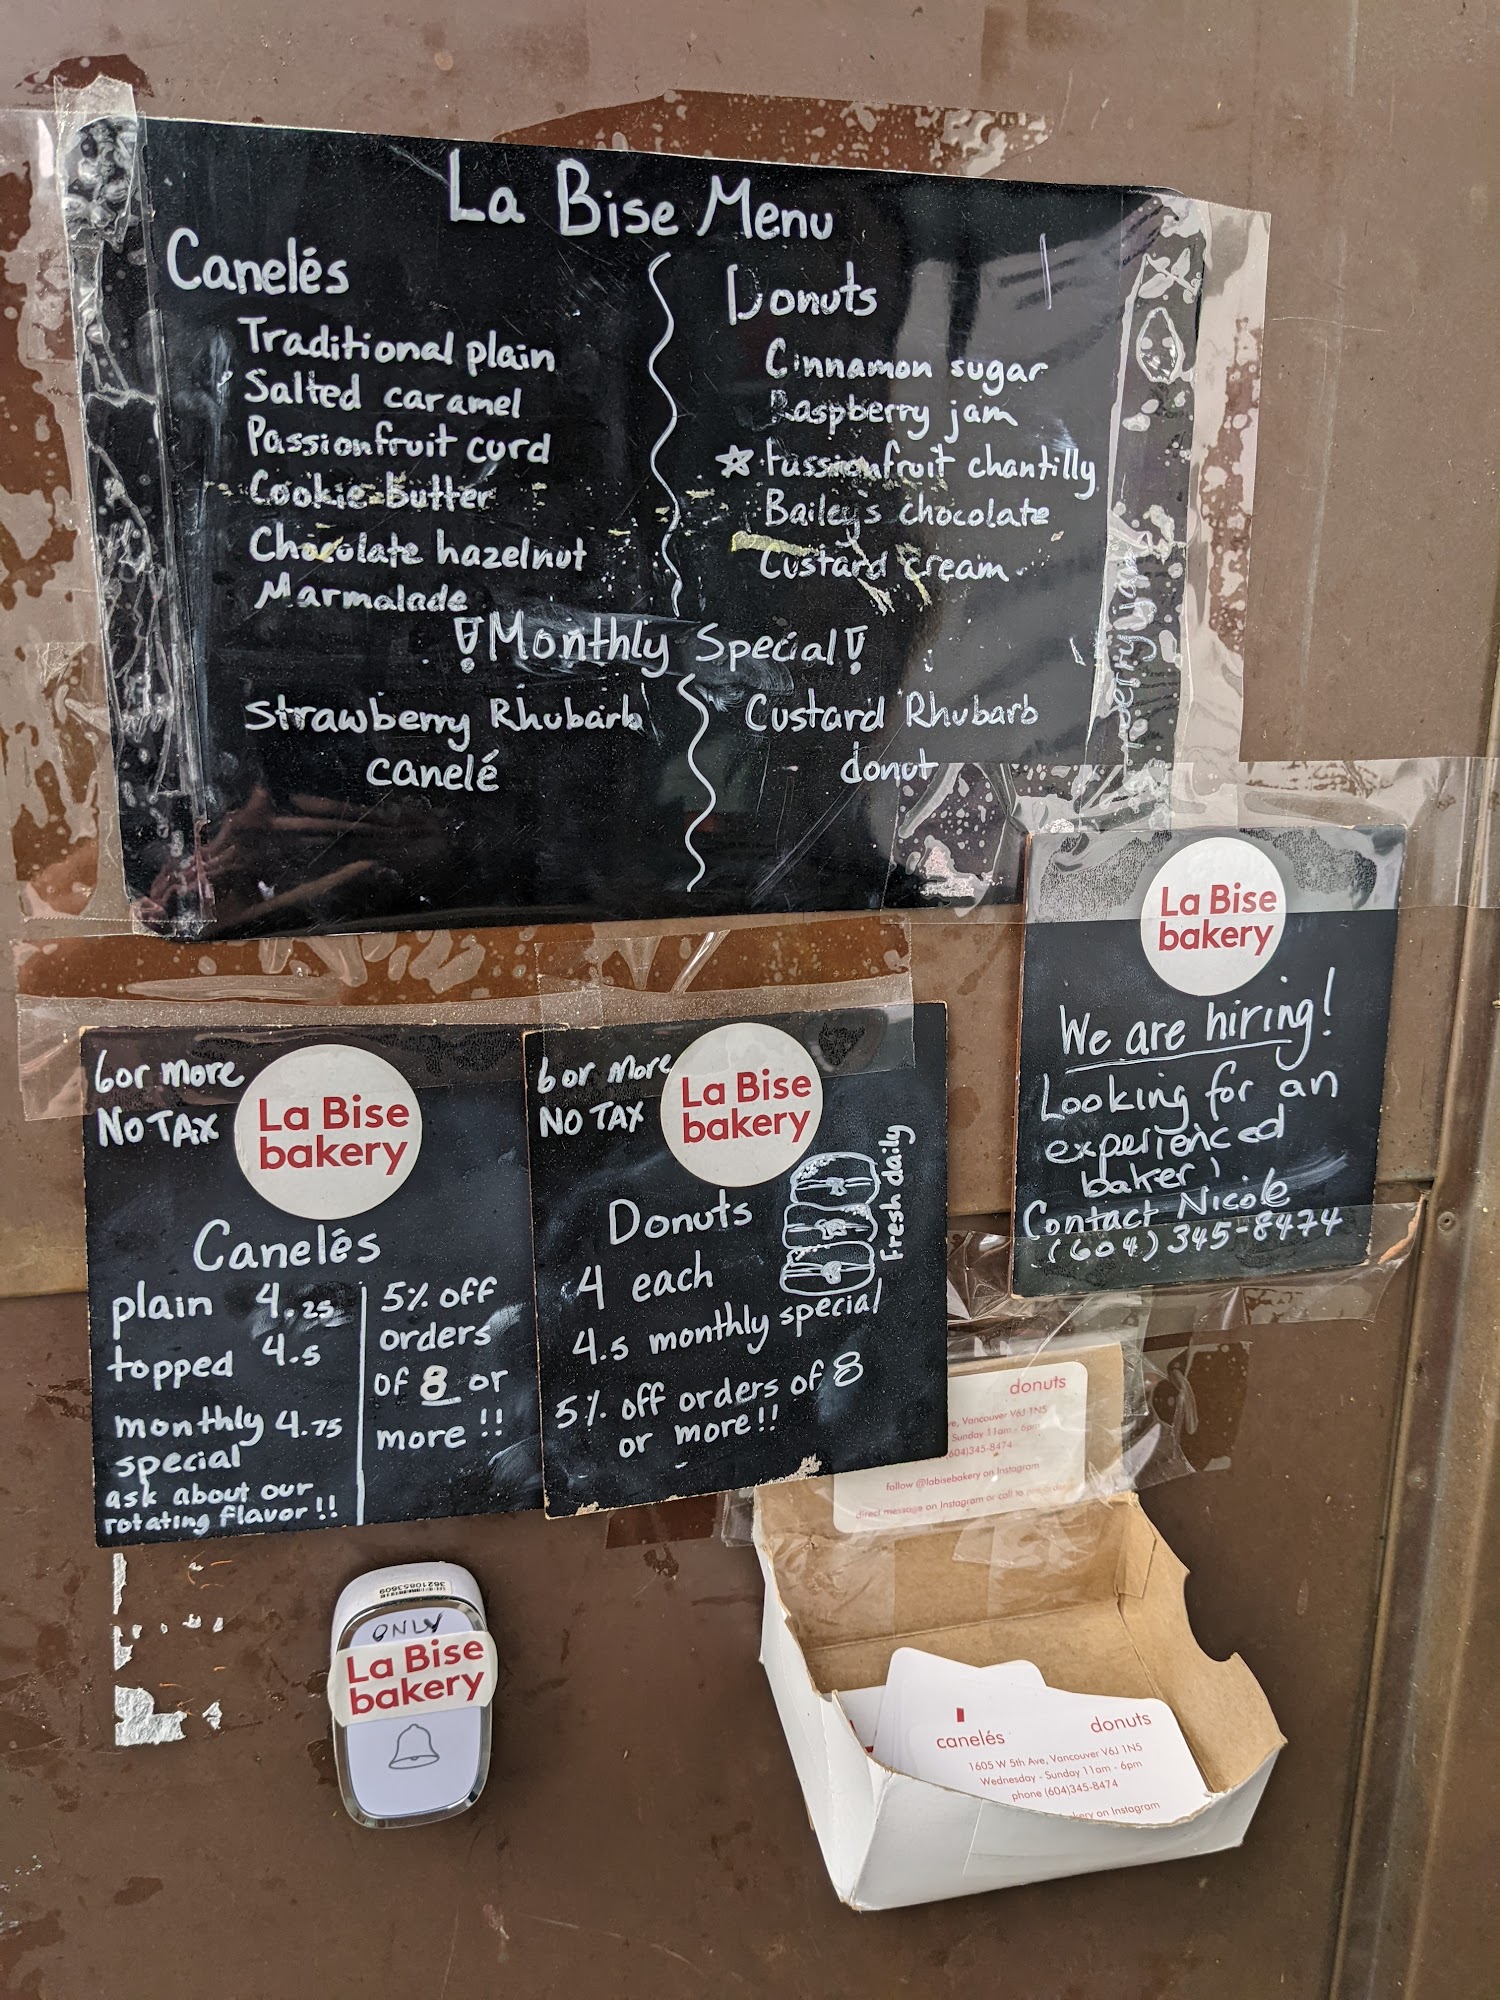 La Bise Menu
Canelés
Traditional plain
Salted caramel
Passionfruit curd
Cookie butter
Chocolate hazelnut
Marmalade
Donuts
Cinnamon sugar
Raspberry jam
Passionfruit chantilly
Bailey's chocolate
Custard cream
!Monthly Special!
Strawberry Rhubarb
canelé
Custard Rhubarb
donut
La Bise
bakery
We are hiring!
Looking for an
experienced
baker!
Contact Nicole
(604) 345-8474
6 or more
NO TAX
La Bise
bakery
Canelés
plain 4.25
topped 4.5
monthly 4.75
special
ask about our
rotating flavor!!
5% off
orders
of 8 or
more!!
6 or more
NO TAX
La Bise
bakery
Fresh daily
Donuts
4 each
4.5 monthly special
5% off orders of 8
or more!!
donuts
ve, Vancouver V6J 1N5
Sunday 11am - 6pm
(604)345-8474
follow @labisebakery on Instagram
direct message on Instagram or call to
36210853609
ONLY
La Bise
bakery
canelés donuts
1605 W 5th Ave, Vancouver V6J 1N5
Wednesday - Sunday 11am - 6pm
phone (604)345-8474
kery on Instagram